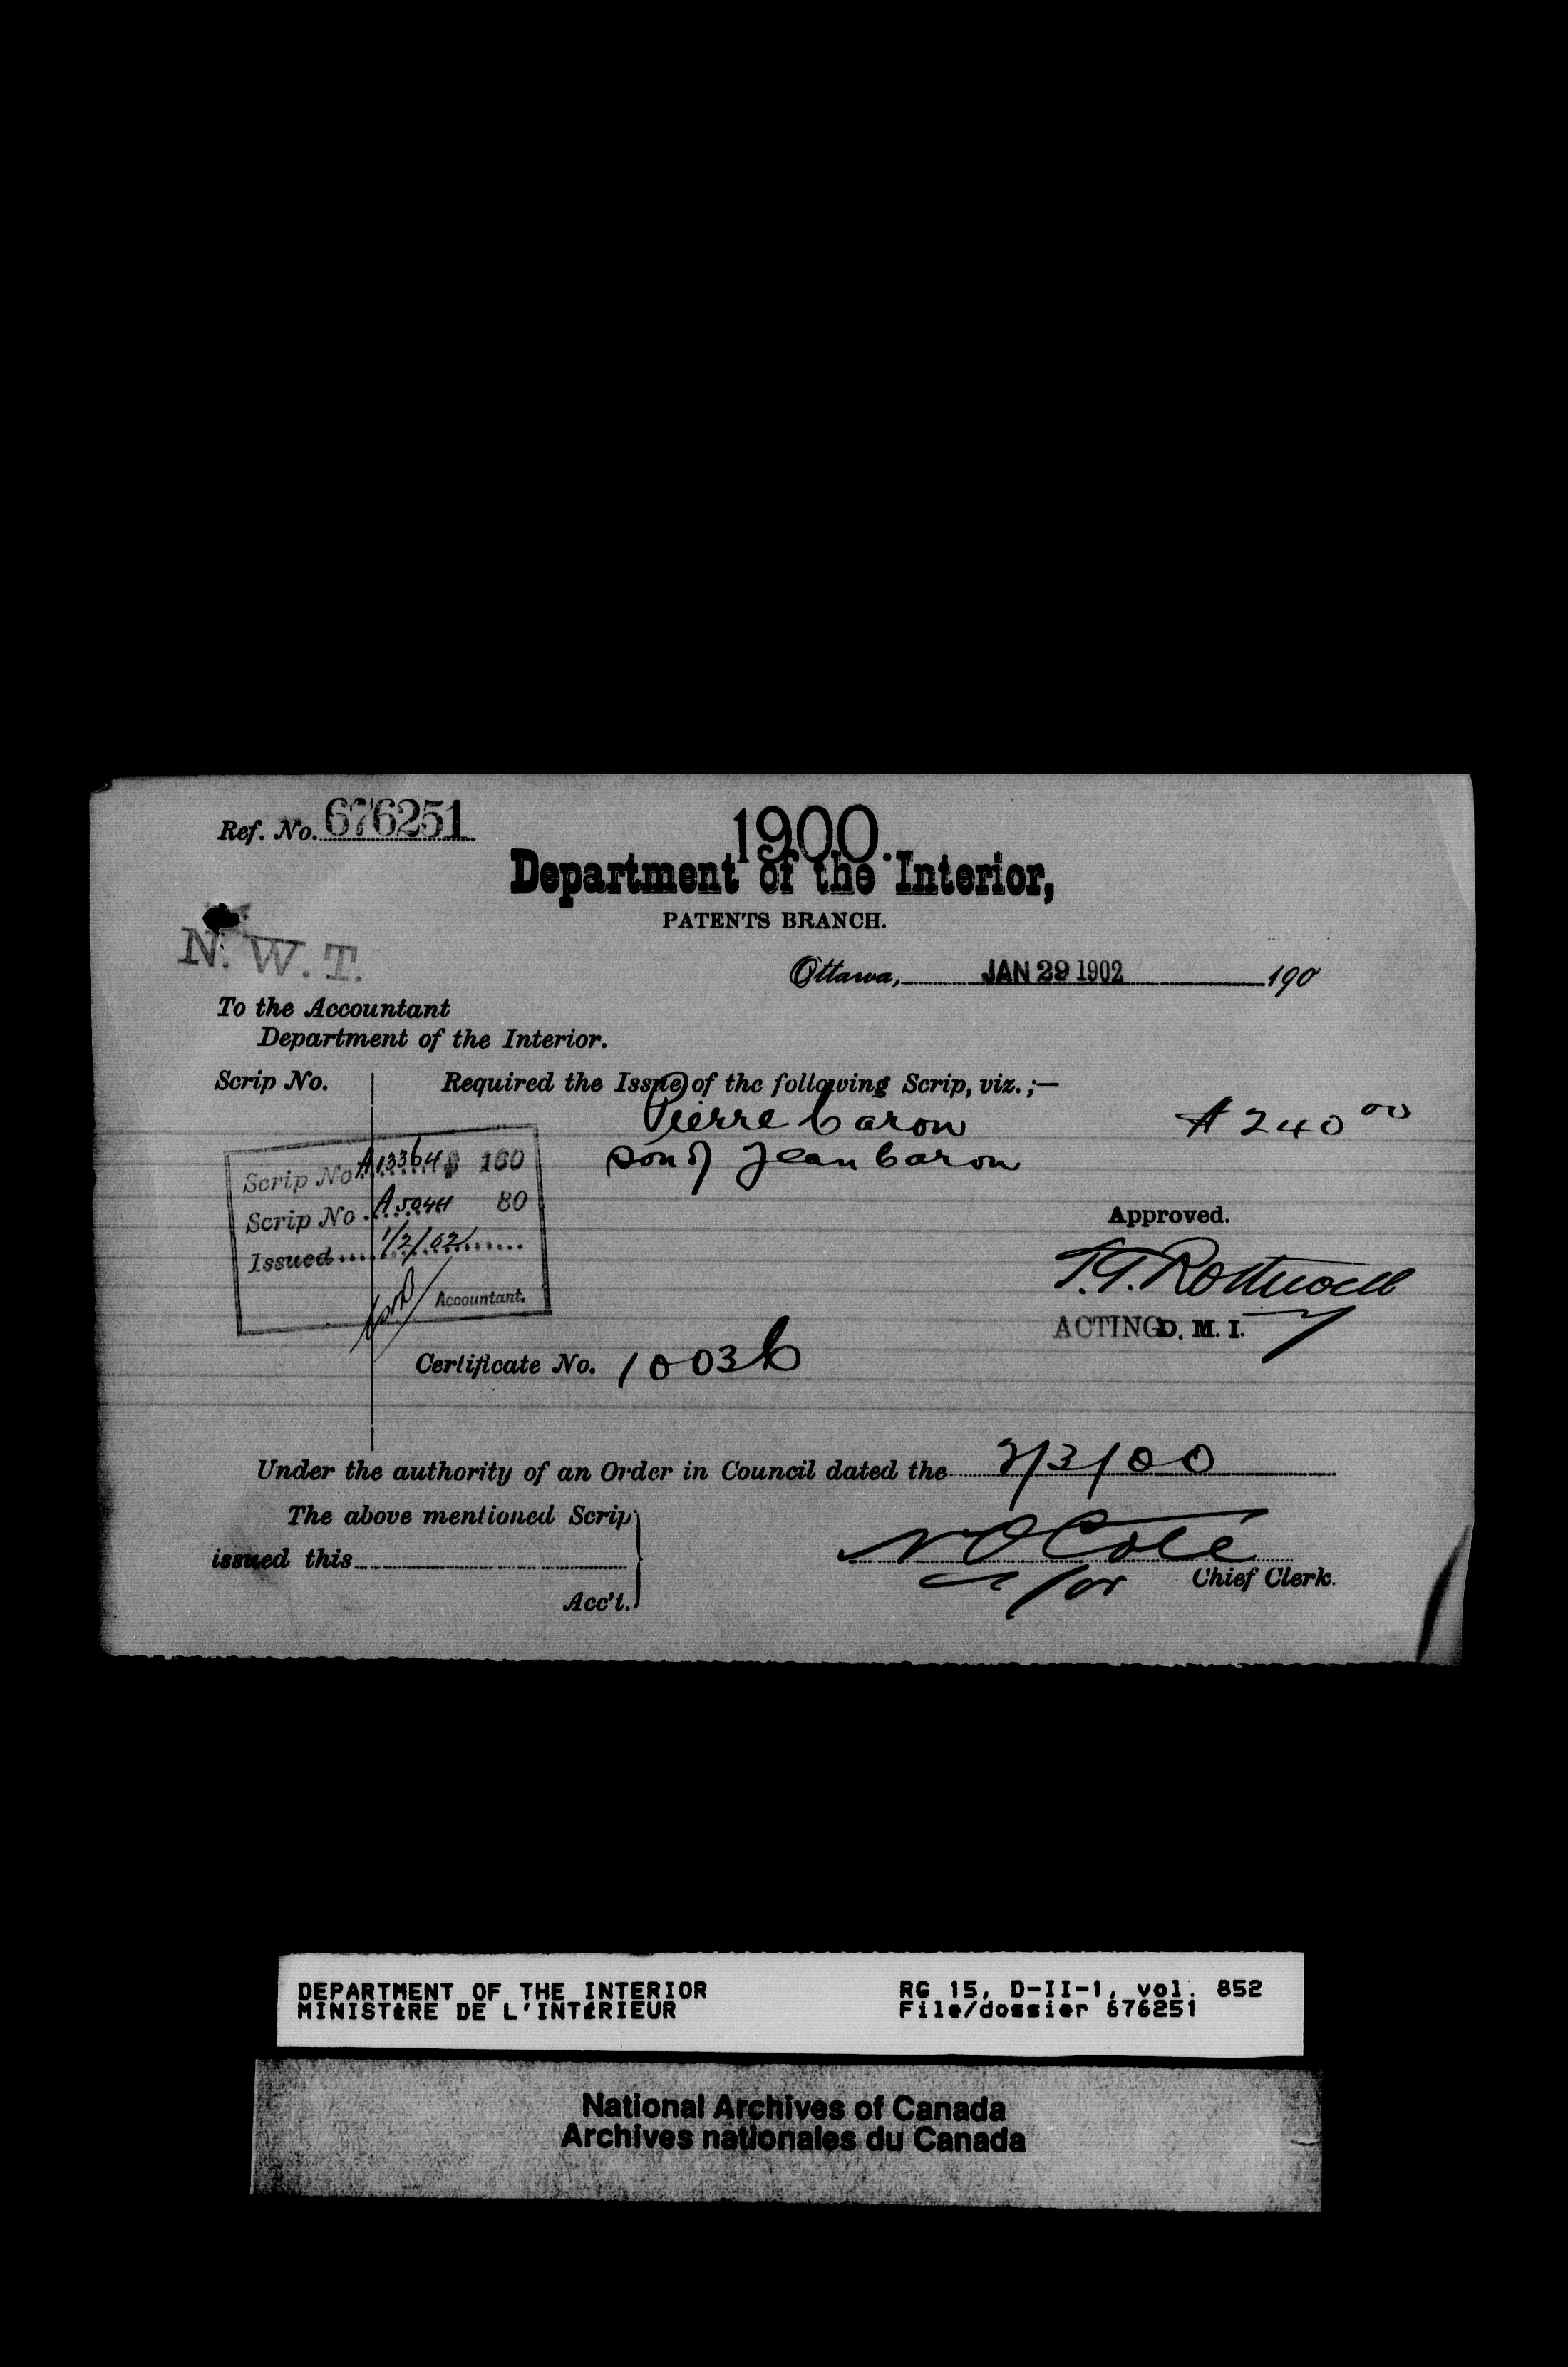 Ref. No. 676251
1900.
Department of the Interior,
PATENTS BRANCH.
N. W. T.
Ottawa, JAN 29 1902 190
To the Accountant
Department of the Interior.
Scrip No.
Required the Issue of the following Scrip, viz.;—
Pierre Caron $240 00
son of Jean Caron
Scrip No. A13364 $ 160
Scrip No. A5044 80
Issued .... 1/2/02
Accountant.
Approved.
T.G. Rothwell
ACTING D. M. I.
Certificate No. 10036
Under the authority of an Order in Council dated the 2/3/00
The above mentioned Scrip
issued this
Acc't.
N O Coté
for Chief Clerk.
DEPARTMENT OF THE INTERIOR
MINISTÈRE DE L'INTÉRIEUR
RG 15, D-II-1, vol. 852
File/dossier 676251
National Archives of Canada
Archives nationales du Canada